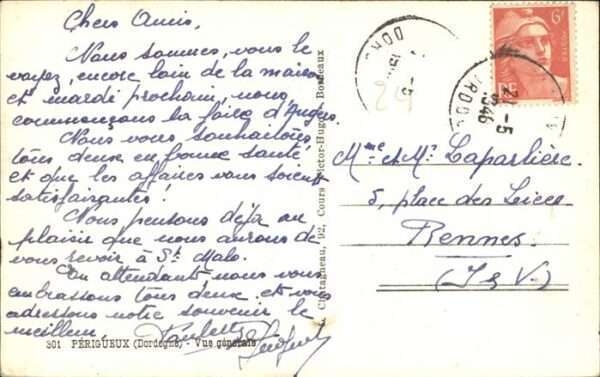 Chers Amis,
Nous sommes, vous le
voyez, encore loin de la maison
et mardi prochain, nous
commençons la foire d'Angers.
Nous vous souhaitons
tous deux en bonne santé
et que les affaires vous soient
satisfaisantes !
Nous pensons déjà au
plaisir que nous aurons de
vous revoir à St Malo.
En attendant nous vous
embrassons tous deux et vous
adressons notre souvenir le
meilleur.
301 PÉRIGUEUX (Dordogne) - Vue générale
92, Cours Victor-Hugo, Bordeaux
6F
RF
21 -5
1946
DORDOGNE
24
Mme et Mr Lapartière
5, place des Lices
Rennes
(I & V.)